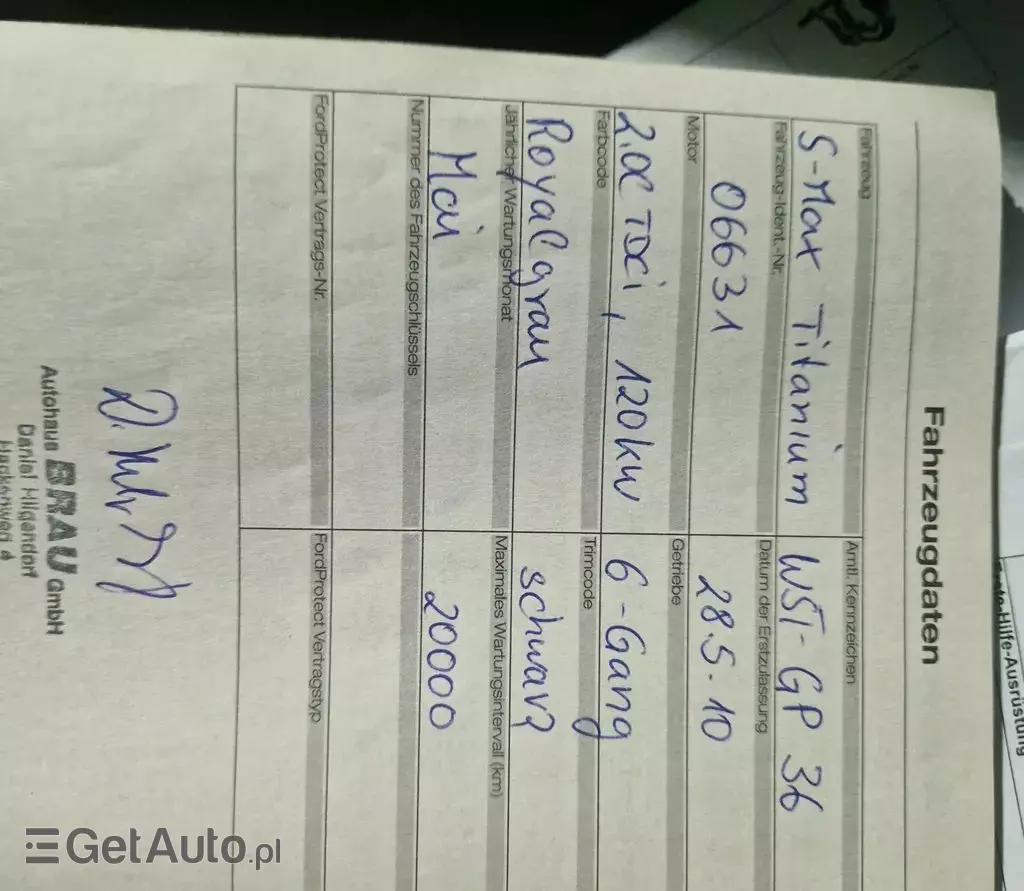 Fahrzeugdaten
Fahrzeug
Amtl. Kennzeichen
S-Max Titanium
WST-GP 36
Fahrzeug-Ident.-Nr.
Datum der Erstzulassung
06631
28.5.10
Motor
Getriebe
2.0l TDCi, 120kW
6-Gang
Farbcode
Trimcode
Royalgrau
schwarz
Jährlicher Wartungsmonat
Maximales Wartungsintervall (km)
Mai
20000
Nummer des Fahrzeugschlüssels
FordProtect Vertrags-Nr.
FordProtect Vertragstyp
Autohaus BRAU GmbH
Daniel Hilgendorf
Hilfe-Ausrüstung
GetAuto.pl